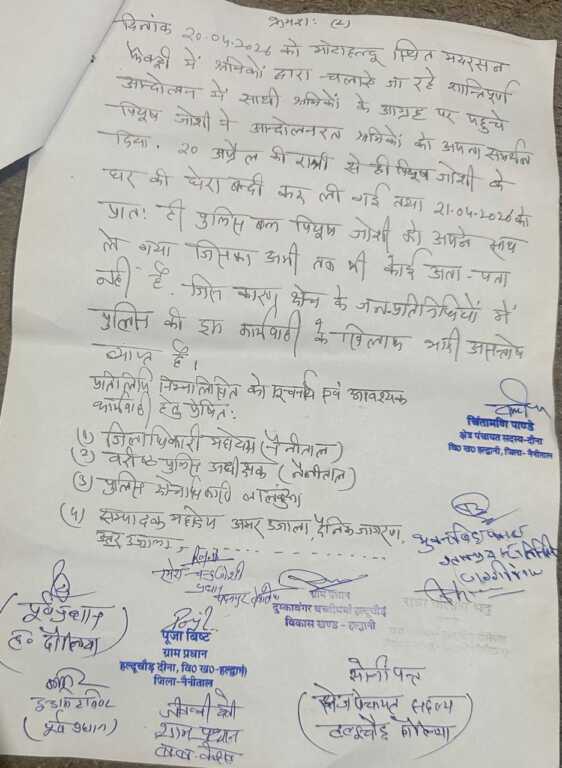 क्रमशः (2)
दिनांक 20-04-2026 को मोटाहल्दू स्थित
फैक्ट्री में श्रमिकों द्वारा चलाये जा रहे शान्तिपूर्ण
आन्दोलन में साथी श्रमिकों के आग्रह पर पहुचे
पियूष जोशी ने आन्दोलनरत श्रमिकों को अपना समर्थन
दिया. 20 अप्रैल की रात्री से ही पियूष जोशी के
घर की घेरा बन्दी कर ली गई तथा 21-04-2026 को
प्रातः ही पुलिस बल पियूष जोशी को अपने साथ
ले गया जिसका अभी तक भी कोई अता-पता
नही है. जिस कारण क्षेत्र के जनप्रतिनिधियों में
पुलिस की इस कार्यवाही के खिलाफ भारी असन्तोष
व्याप्त है।
प्रतीलिपि निम्नलिखित को सूचनार्थ एवं आवश्यक
कार्यवाही हेतु प्रेषित:
(1) जिलाधिकारी महोदय (नैनीताल)
(2) वरिष्ठ पुलिस अधीक्षक (नैनीताल)
(3) पुलिस
(4) सम्पादक महोदय अमर उजाला, दैनिक जागरण,
उत्तर उजाला
चिंतामणि पाण्डे
क्षेत्र पंचायत सदस्य-दीना
वि० ख० हल्द्वानी, जिला-नैनीताल
जोशी
प्रधान
ग्राम प्रधान
हल्दूचौड़
विकास खण्ड - हल्द्वानी
(पूर्व प्रधान
ह० दौलिया)
पूजा बिष्ट
ग्राम प्रधान
हल्दूचौड़ दीना, वि० ख०-हल्द्वानी
जिला-नैनीताल
(पूर्व प्रधान)
देवी
ग्राम प्रधान
पन्त
(क्षेत्र पंचायत सदस्य
हल्दूचौड़ दौलिया)